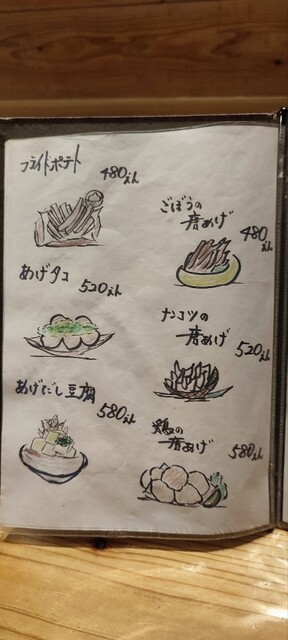 フライドポテト
480えん
あげタコ
520えん
あげだし豆腐
580えん
ごぼうの
唐あげ
480えん
ナンコツの
唐あげ
520えん
鶏の
唐あげ
580えん